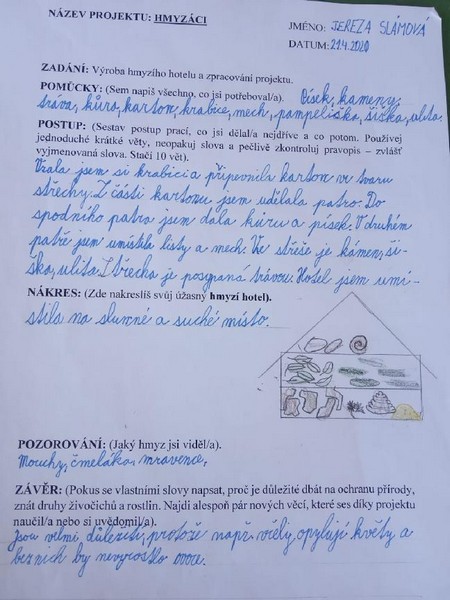 NÁZEV PROJEKTU: HMYZÁCI
JMÉNO: JEREZA SLÁMOVÁ
DATUM: 21.4.2020
ZADÁNÍ: Výroba hmyzího hotelu a zpracování projektu.
POMŮCKY: (Sem napiš všechno, co jsi potřeboval/a). Písek, kameny,
tráva, kůra, karton, krabice, mech, pampeliška, šiška, ulita.
POSTUP: (Sestav postup prací, co jsi dělal/a nejdříve a co potom. Používej
jednoduché krátké věty, neopakuj slova a pečlivě zkontroluj pravopis – zvlášť
vyjmenovaná slova. Stačí 10 vět).
Vzala jsem si krabici a připevnila karton ve tvaru
střechy. Z části kartonu jsem udělala patro. Do
spodního patra jsem dala kůru a písek. V druhém
patře jsem umístila listy a mech. Ve střeše je kámen, ši-
ška, ulita. Střecha je posypaná trávou. Hotel jsem umí-
NÁKRES: (Zde nakreslíš svůj úžasný hmyzí hotel).
stila na slunné a suché místo.
POZOROVÁNÍ: (Jaký hmyz jsi viděl/a).
Mouchy, čmeláka, mravence.
ZÁVĚR: (Pokus se vlastními slovy napsat, proč je důležité dbát na ochranu přírody,
znát druhy živočichů a rostlin. Najdi alespoň pár nových věcí, které ses díky projektu
naučil/a nebo si uvědomil/a).
Jsou velmi důležití, protože např. včely, opylují květy a
bez nich by nevyrostlo ovoce.